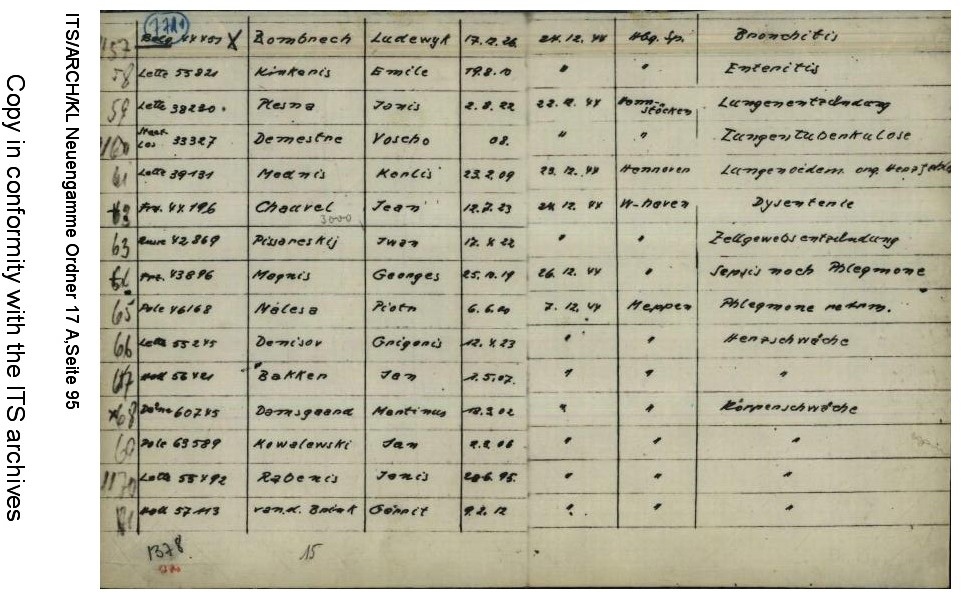 Copy in conformity with the ITS archives
ITS/ARCH/KL Neuengamme Ordner 17 A,Seite 95
1157 Belg 44451 X Bombrech Ludewyk 17.12.26 24.12.44 Hbg. Sp. Bronchitis
58 Lette 55821 Kinkaris Emile 19.8.10 " " Enteritis
59 Lette 38220 Plesna Janis 2.8.22 22.12.44 Bemm-stöcken Lungenentzündung
1160 Staat Los 33327 Demestre Voscho 08. " " Lungentuberkulose
61 Lette 39131 Mednis Karlis 23.2.09 23.12.44 Hannover Lungenoedem. org.
Frz. 44196 Chauvel Jean 12.7.23 24.12.44 W-haven Dysenterie
3000
63 42869 Pissareskij Iwan 12.4.22 " " Zellgewebsentzündung
Frz. 43896 Magnis Georges 26.12.44 " Sepsis nach Phlegmone
65 Pole 46168 Nalesa Piotr 6.6.20 7.12.44 Meppen Phlegmone
66 Lette 55245 Denisov Grigoris 12.4.23 " " Herzschwäche
67 Holl 56421 Bakken Jan " " "
68 Däne 60745 Damsgaard Martinus 18.3.02 " " Körperschwäche
69 Pole 63589 Kowalewski Jan 2.2.06 " " "
1170 Lette 55492 Rabenis Janis " " "
Holl 57113 van.d. Brink Gerrit 9.2.12 " " "
1378 15